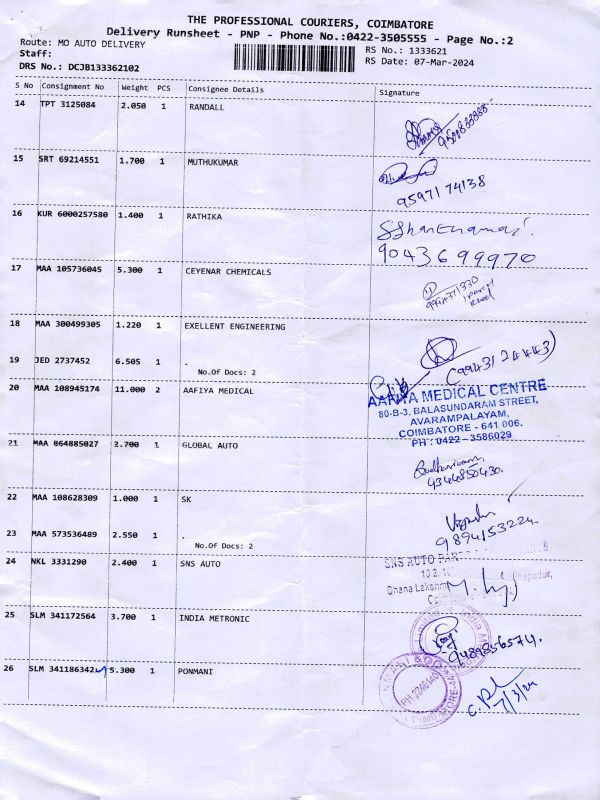 THE PROFESSIONAL COURIERS, COIMBATORE
Delivery Runsheet - PNP - Phone No.:0422-3505555 - Page No.:2
Route: MO AUTO DELIVERY
RS No.: 1333621
Staff:
RS Date: 07-Mar-2024
DRS No.: DCJB133362102
S No Consignment No Weight PCS Consignee Details Signature
14 TPT 3125084 2.050 1 RANDALL
15 SRT 69214551 1.700 1 MUTHUKUMAR
9597174138
16 KUR 6000257580 1.400 1 RATHIKA
9043699970
17 MAA 105736045 5.300 1 CEYENAR CHEMICALS
18 MAA 300499305 1.220 1 EXELLENT ENGINEERING
19 JED 2737452 6.505 1 .
No.Of Docs: 2
20 MAA 108945174 11.000 2 AAFIYA MEDICAL
AAFIYA MEDICAL CENTRE
80-B-3, BALASUNDARAM STREET,
AVARAMPALAYAM,
COIMBATORE - 641 006.
PH : 0422 - 3586029
21 MAA 864885027 2.700 1 GLOBAL AUTO
22 MAA 108628309 1.000 1 SK
9894153224.
23 MAA 573536489 2.550 1 .
No.Of Docs: 2
24 NKL 3331290 2.400 1 SNS AUTO
SNS AUTO
25 SLM 341172564 3.700 1 INDIA METRONIC
9489856574.
26 SLM 341186342 5.300 1 PONMANI
7/3/24